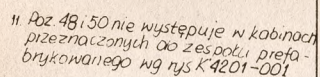 11. Poz. 48 i 50 nie występuje w kabinach
przeznaczonych do zespołu prefa-
brykowanego wg rys K4201-001